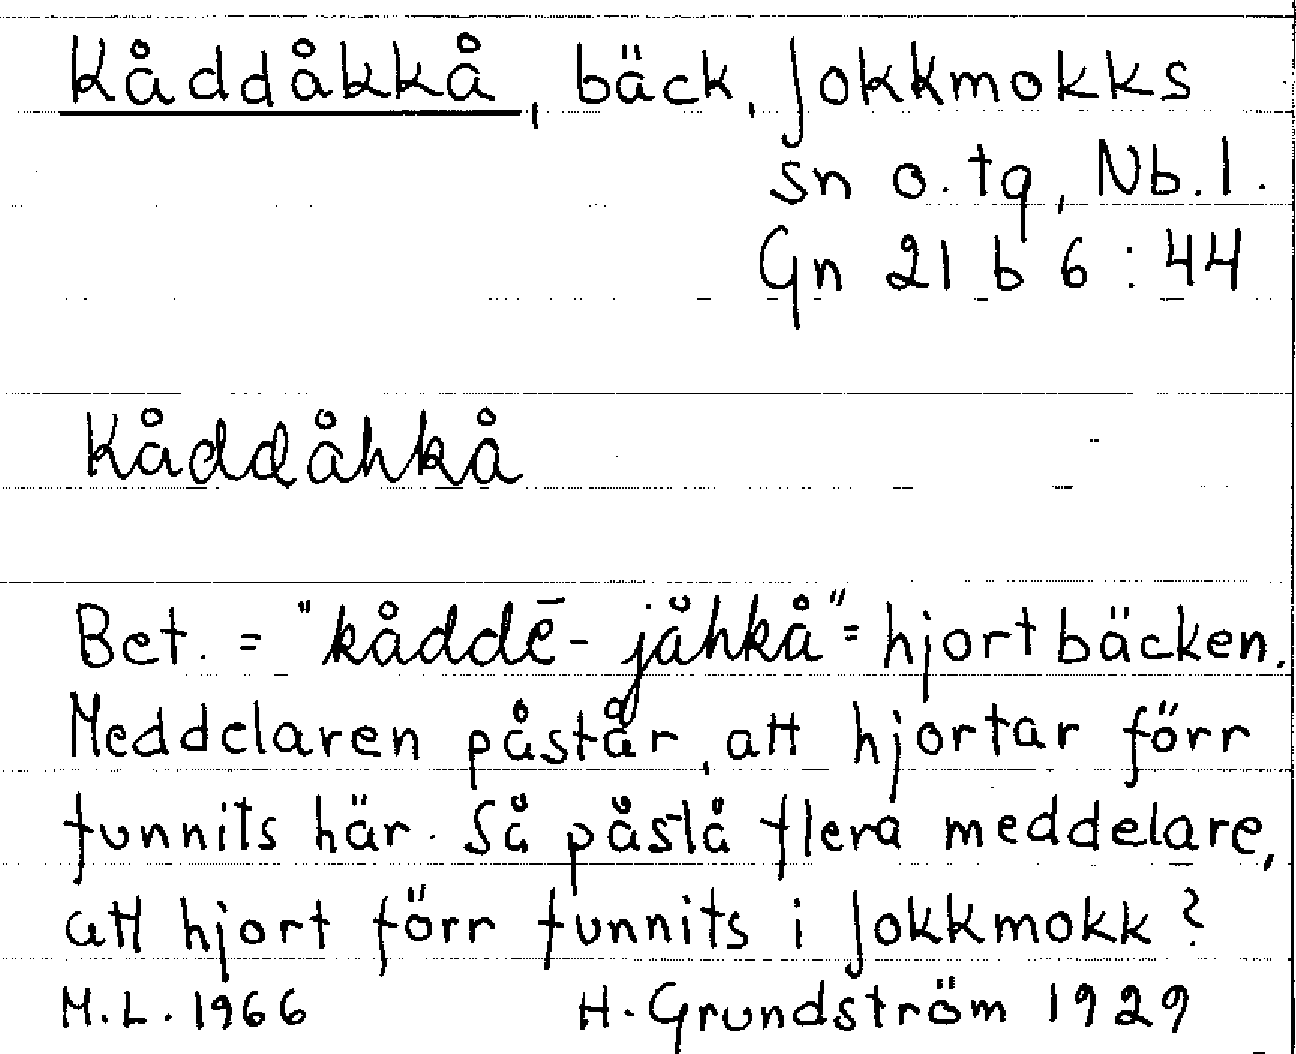 Kåddåkkå, bäck, Jokkmokks
sn o. tg, Nb. l.
Gn 21 b 6 : 44
Kåddåhkå
Bet. = "kåddē-jåhkå" = hjortbäcken.
Meddelaren påstår, att hjortar förr
funnits här. Så påstå flera meddelare,
att hjort förr funnits i Jokkmokk?
M.L. 1966 H. Grundström 1929